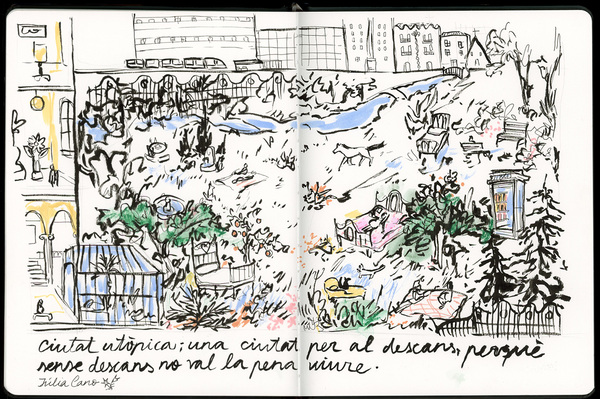 Ciutat utòpica; una ciutat per al descans, perquè
sense descans no val la pena viure.
Júlia Cano